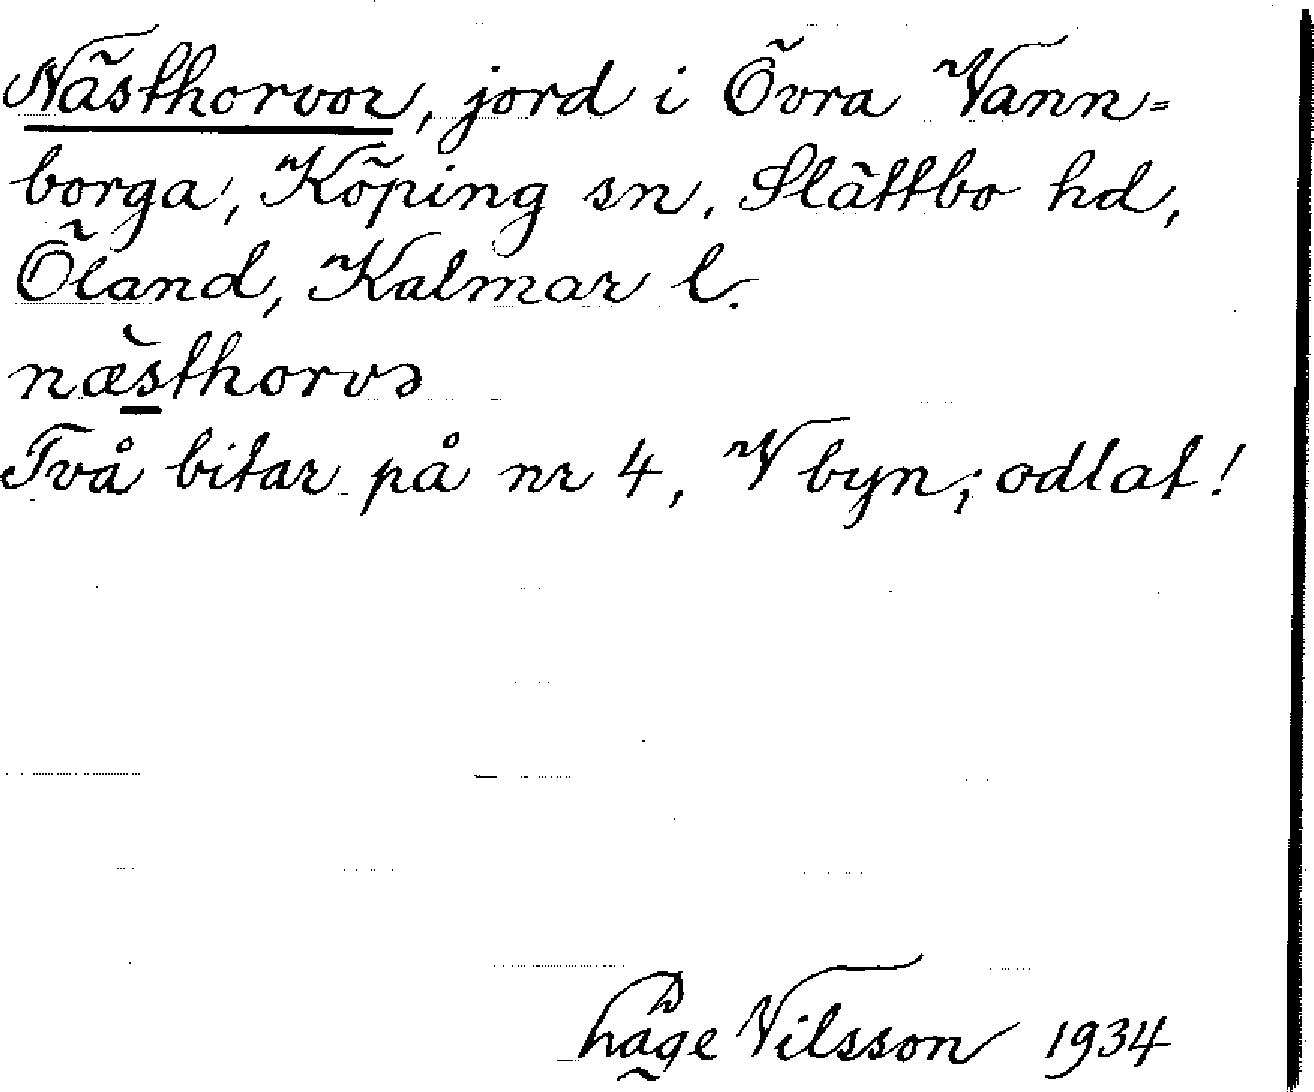 Nästhorvor, jord i Övra Vann-
borga, Köping sn, Slättbo hd,
Öland, Kalmar l.
næsthorvə
Två bitar på nr 4, V byn; odlat!
Nilsson 1934